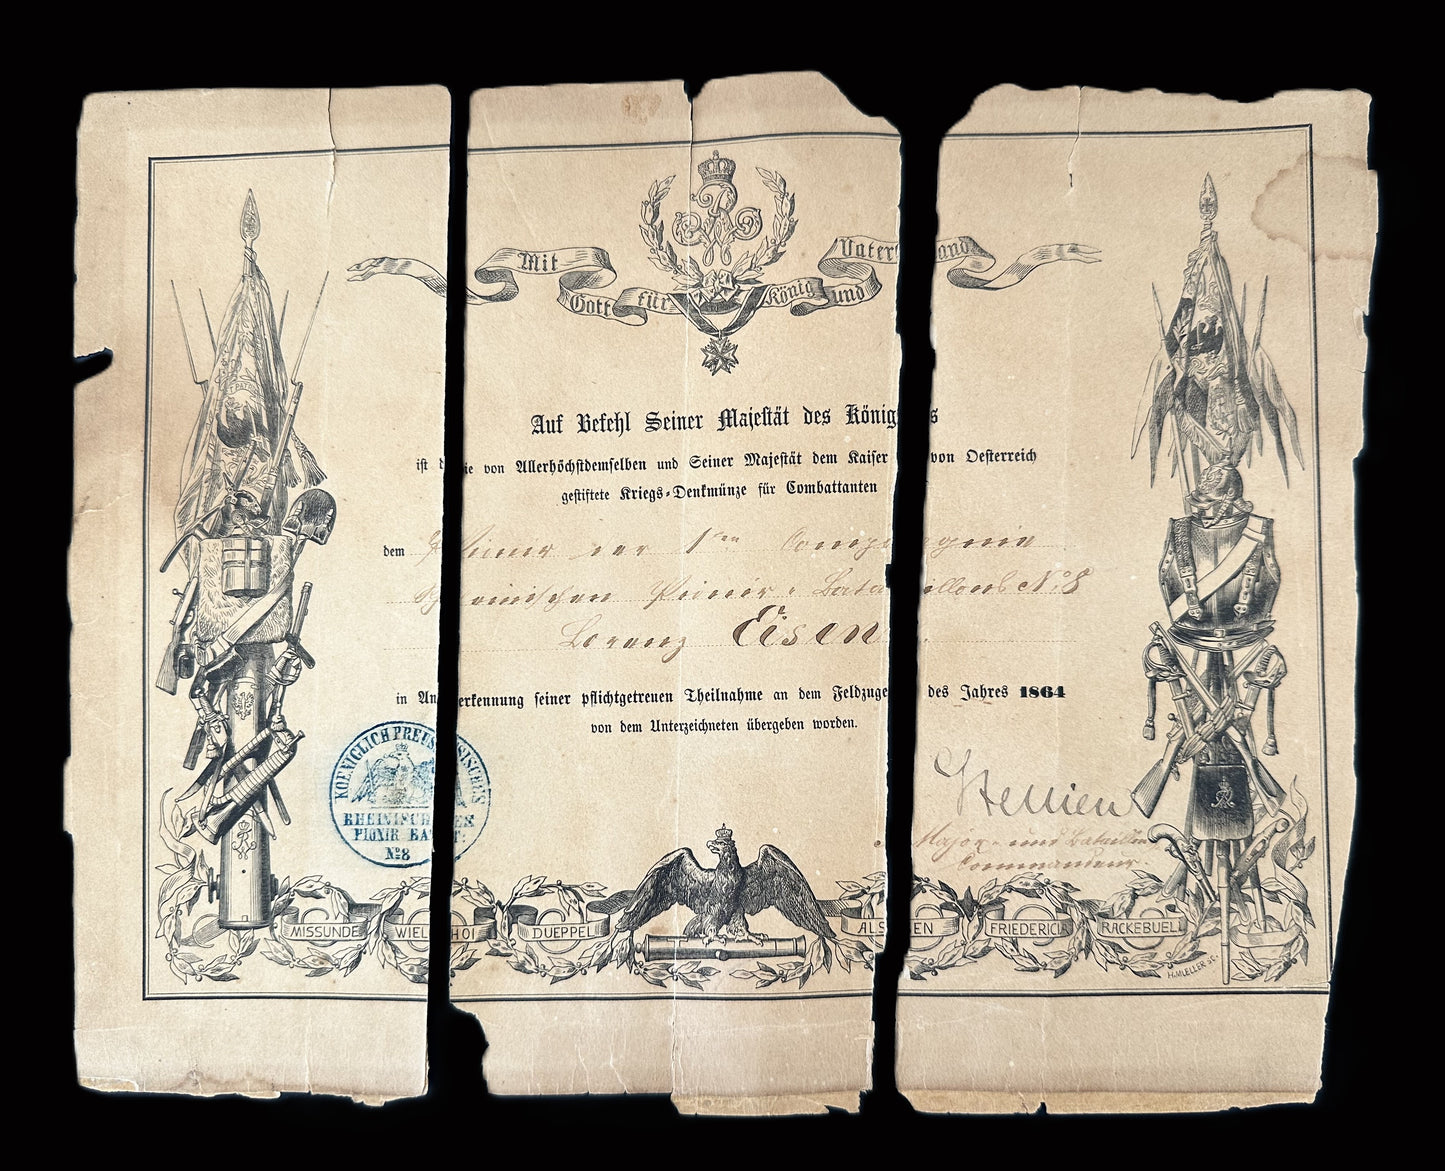 Mit
Gott für König und
Vaterland
Auf Befehl Seiner Majestät des Königs
ist die von Allerhöchstdemselben und Seiner Majestät dem Kaiser von Oesterreich
gestiftete Kriegs-Denkmünze für Combattanten
dem Pionier der 1ten Compagnie
Rheinischen Pionir-Bataillons No. 8
Lorenz Eisen
in Anerkennung seiner pflichtgetreuen Theilnahme an dem Feldzuge des Jahres 1864
von dem Unterzeichneten übergeben worden.
KOENIGLICH PREUSSISCHES
RHEINISCHES
PIONIR BAT:
No 8
Major und Bataillons
Commandeur.
MISSUNDE
WIELHOI
DUEPPEL
ALSEN
FRIEDERICIA
RACKEBUELL
H.MUELLER SC.